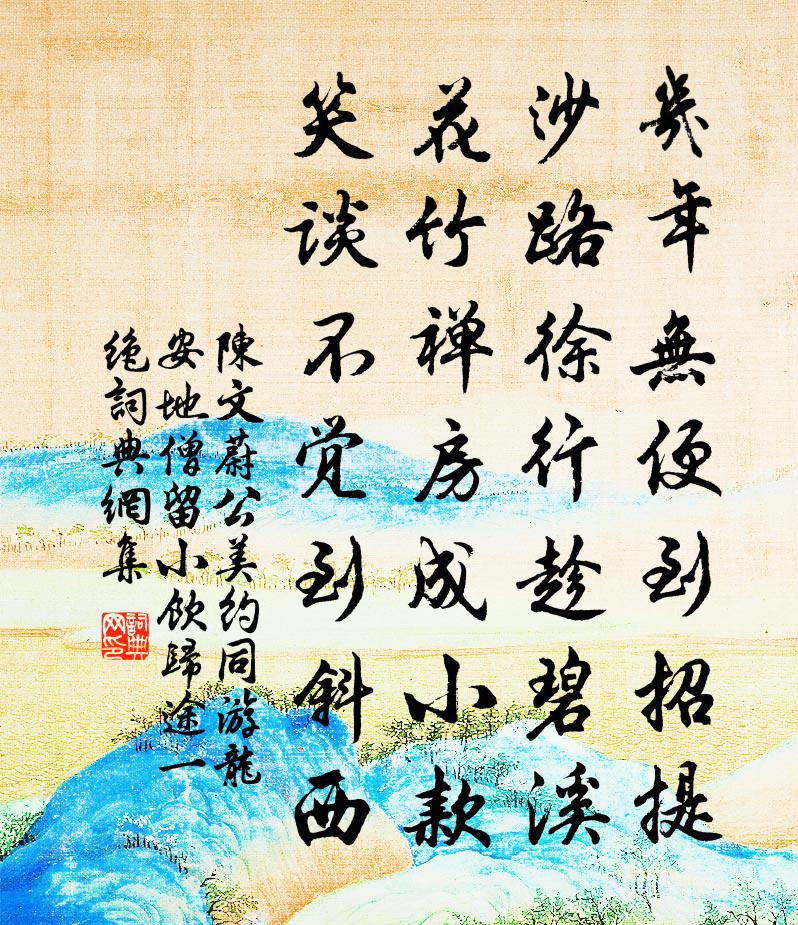 幾年無便到招提
沙路徐行趁碧溪
花竹禅房成小款
笑谈不觉到斜西
陳文蔚公美约同游龍
安地僧留小飲歸途一
绝詞典網集
詞典
网印